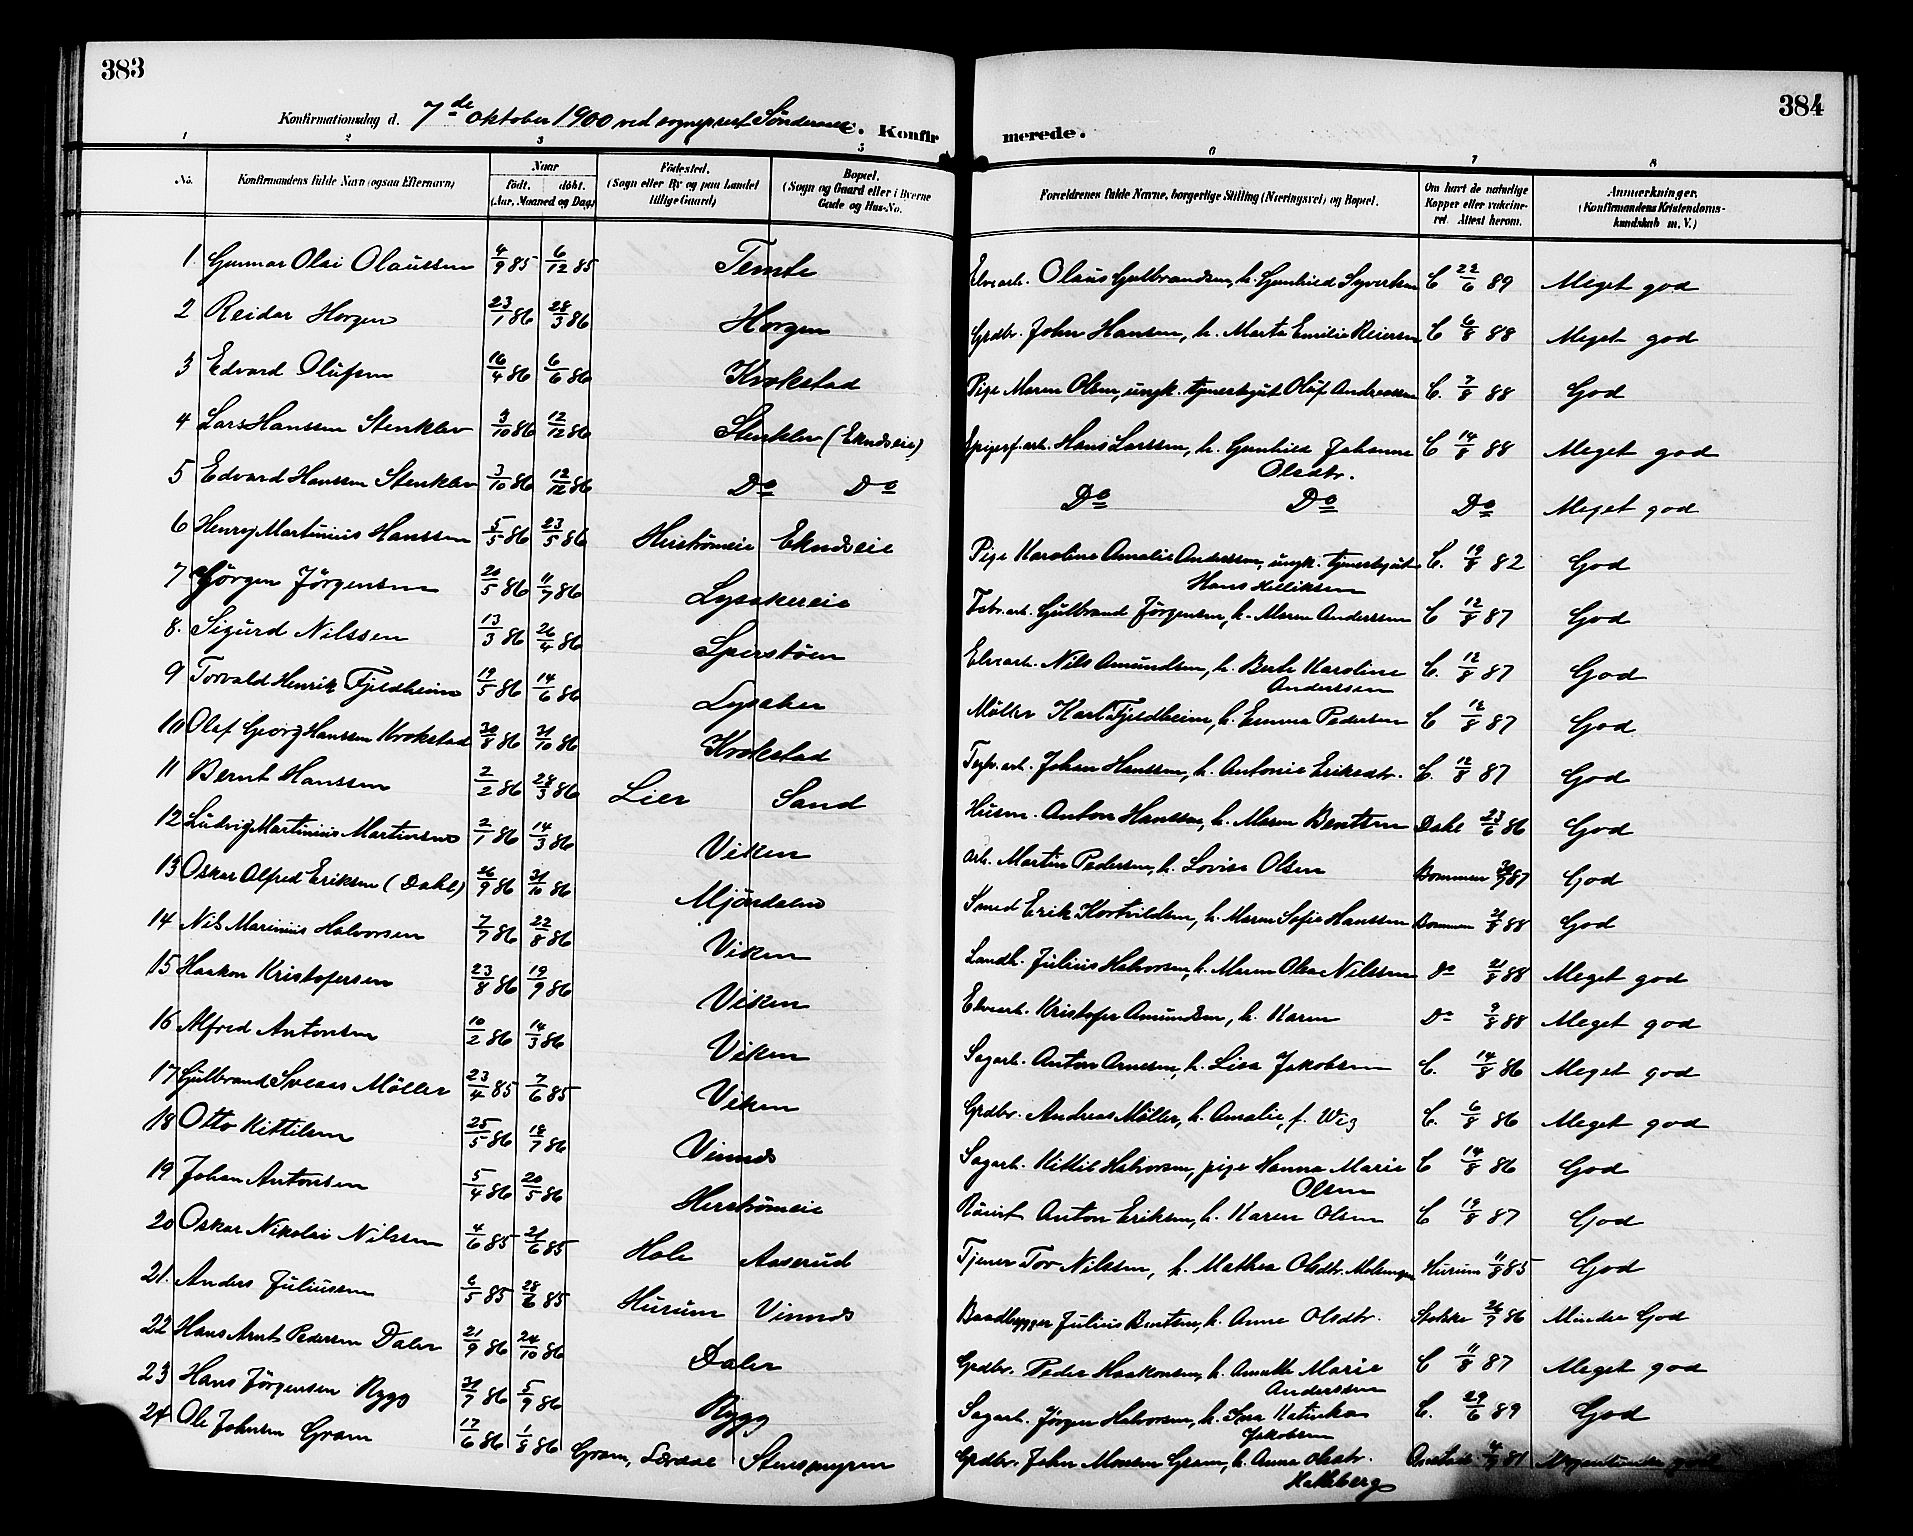 383
384
Konfirmationsdag d. 7de oktober 1900 ved sogneprest C. Konfirmerede.
1 2 3 5 6 7 8
No. Konfirmandens fulde Navn (ogsaa Efternavn) Naar født. døbt. (Aar, Maaned og Dag) Födested. (Sogn eller By og paa Landet tillige Gaard) Bopæl. (Sogn og Gaard eller i Byerne Gade og Hus-No. Forældrenes fulde Navne, borgerlige Stilling (Næringsvei) og Bopæl. Om havt de naturlige Kopper eller vakcineret. Attest herom. Anmærkninger. (Konfirmandens Kristendomskundskab m. V.)
1 Gunnar Olai Olaussen 4/9 85 6/12 85 Temte Elvearb. Olaus Gulbrandsen, h. Gunhild Syvertsen C 22/6 89 Meget god
2 Reidar Horgen 23/1 86 28/3 86 Horgen Grdbr. John Hansen, h. Marta Emilie Reiersen C 6/8 88 Meget god
3 Edvard Olufsen 16/4 86 6/6 86 Krokstad Pige Maren Olsen, ungk. tjenestgut Oluf Andreassen C. 7/8 88 God
4 Lars Hanssen Stenklev 3/10 86 12/12 86 Stenklev (Eknæseie) Hans Larssen, h. Gunhild Johanne Olsdtr. C 14/8 88 Meget god
5 Edvard Hanssen Stenklev 3/10 86 12/12 86 Do Do Do Do Do Meget god
6 Henry Martinius Hanssen 5/5 86 23/5 86 Herstrømeie Eknæseie Pige Karoline Amalie Anderssen, ungk. tjenestgut Hans Killiksen C. 19/8 82 God
7 Jørgen Jørgensen 20/5 86 11/7 86 Lysakereie Fabr.arb. Gulbrand Jørgensen, h. Maren Anderssen C 12/8 87 God
8. Sigurd Nilssen 13/3 86 26/4 86 Sperstøen Elvearb. Nils Amundsen, h. Berte Karoline Anderssen C. 12/8 87 God
9 Torvald Henrik Fjeldheim 19/5 86 14/6 86 Lysaker Møller Karl Fjeldheim, h. Emma Pedersen C 12/8 87 God
10 Olaf Georg Hanssen Krokstad 30/8 86 31/10 86 Krokstad Johan Hanssen, h. Antonie Eriksdtr. C. 12/8 87 God
11 Bernt Hanssen 2/2 86 28/3 86 Lier Sand Husm. Anton Hanssen, h. Maren Bentsen Dahl 23/6 86 God
12 Ludvig Martinius Martinsen 2/1 86 14/3 86 Viken arb. Martin Pedersen, h. Lovise Olsen Bommen 87 God
13 Oskar Alfred Eriksen (Dahl) 26/9 86 31/10 86 Mjøndalen Smed Erik Kortvildsen, h. Maren Sofie Hanssen Bommen 88 God
14 Nils Marinius Halvorsen 7/7 86 22/8 86 Viken Landh. Julius Halvorsen, h. Maren Olea Nilssen Do 21/8 88 Meget god
15 Haakon Kristofersen 23/8 86 19/9 86 Viken Elvearb. Kristofer Amundsen, h. Karen Do 9/8 88 Meget god
16 Alfred Antonsen 10/2 86 14/3 86 Viken Sagarb. Anton Arnesen, h. Lisa Jakobsen C. 14/8 86 Meget god
17 Gulbrand Sveaas Møller 23/4 85 7/6 85 Viken Grdbr. Andreas Møller, h. Amalie, f. Wiz C. 6/8 86 Meget god
18 Otto Kittilsen 25/5 86 18/7 86 Vinnæs Sagarb. Kittil Halvorsen, pige Hanna Marie Olsen C 14/8 86 God
19 Johan Antonsen 5/4 86 20/5 86 Herstrømeie Anton Eriksen, h. Karen Olsen C 19/8 87 God
20 Oskar Nikolai Nilssen 4/6 85 21/6 85 Hole Aaserud Tjener Tov Nilssen, h. Mathea Olsdtr. Hurum 11/8 85 God
21. Anders Juliussen 6/5 85 28/6 85 Hurum Vinnæs Baadbygger Julius Bentsen, h. Anne Olsdtr. 86 Mindre God
22 Hans Arnt Pedersen Daler 21/9 86 24/10 86 Daler Grdbr. Peder Haakonsen, h. Anette Marie Anderssen C 11/8 87 Meget god
23 Hans Jørgensen Rygg 31/7 86 5/9 86 Rygg Sagarb. Jørgen Halvorsen, h. Katinka Jakobsen C. 29/6 89 God
24 Ole Johnsen Gram 17/6 86 1/8 86 Gram, Stensmyren Grdbr. John Monsen Gram, h. Anna Olsdtr. Hakkberg